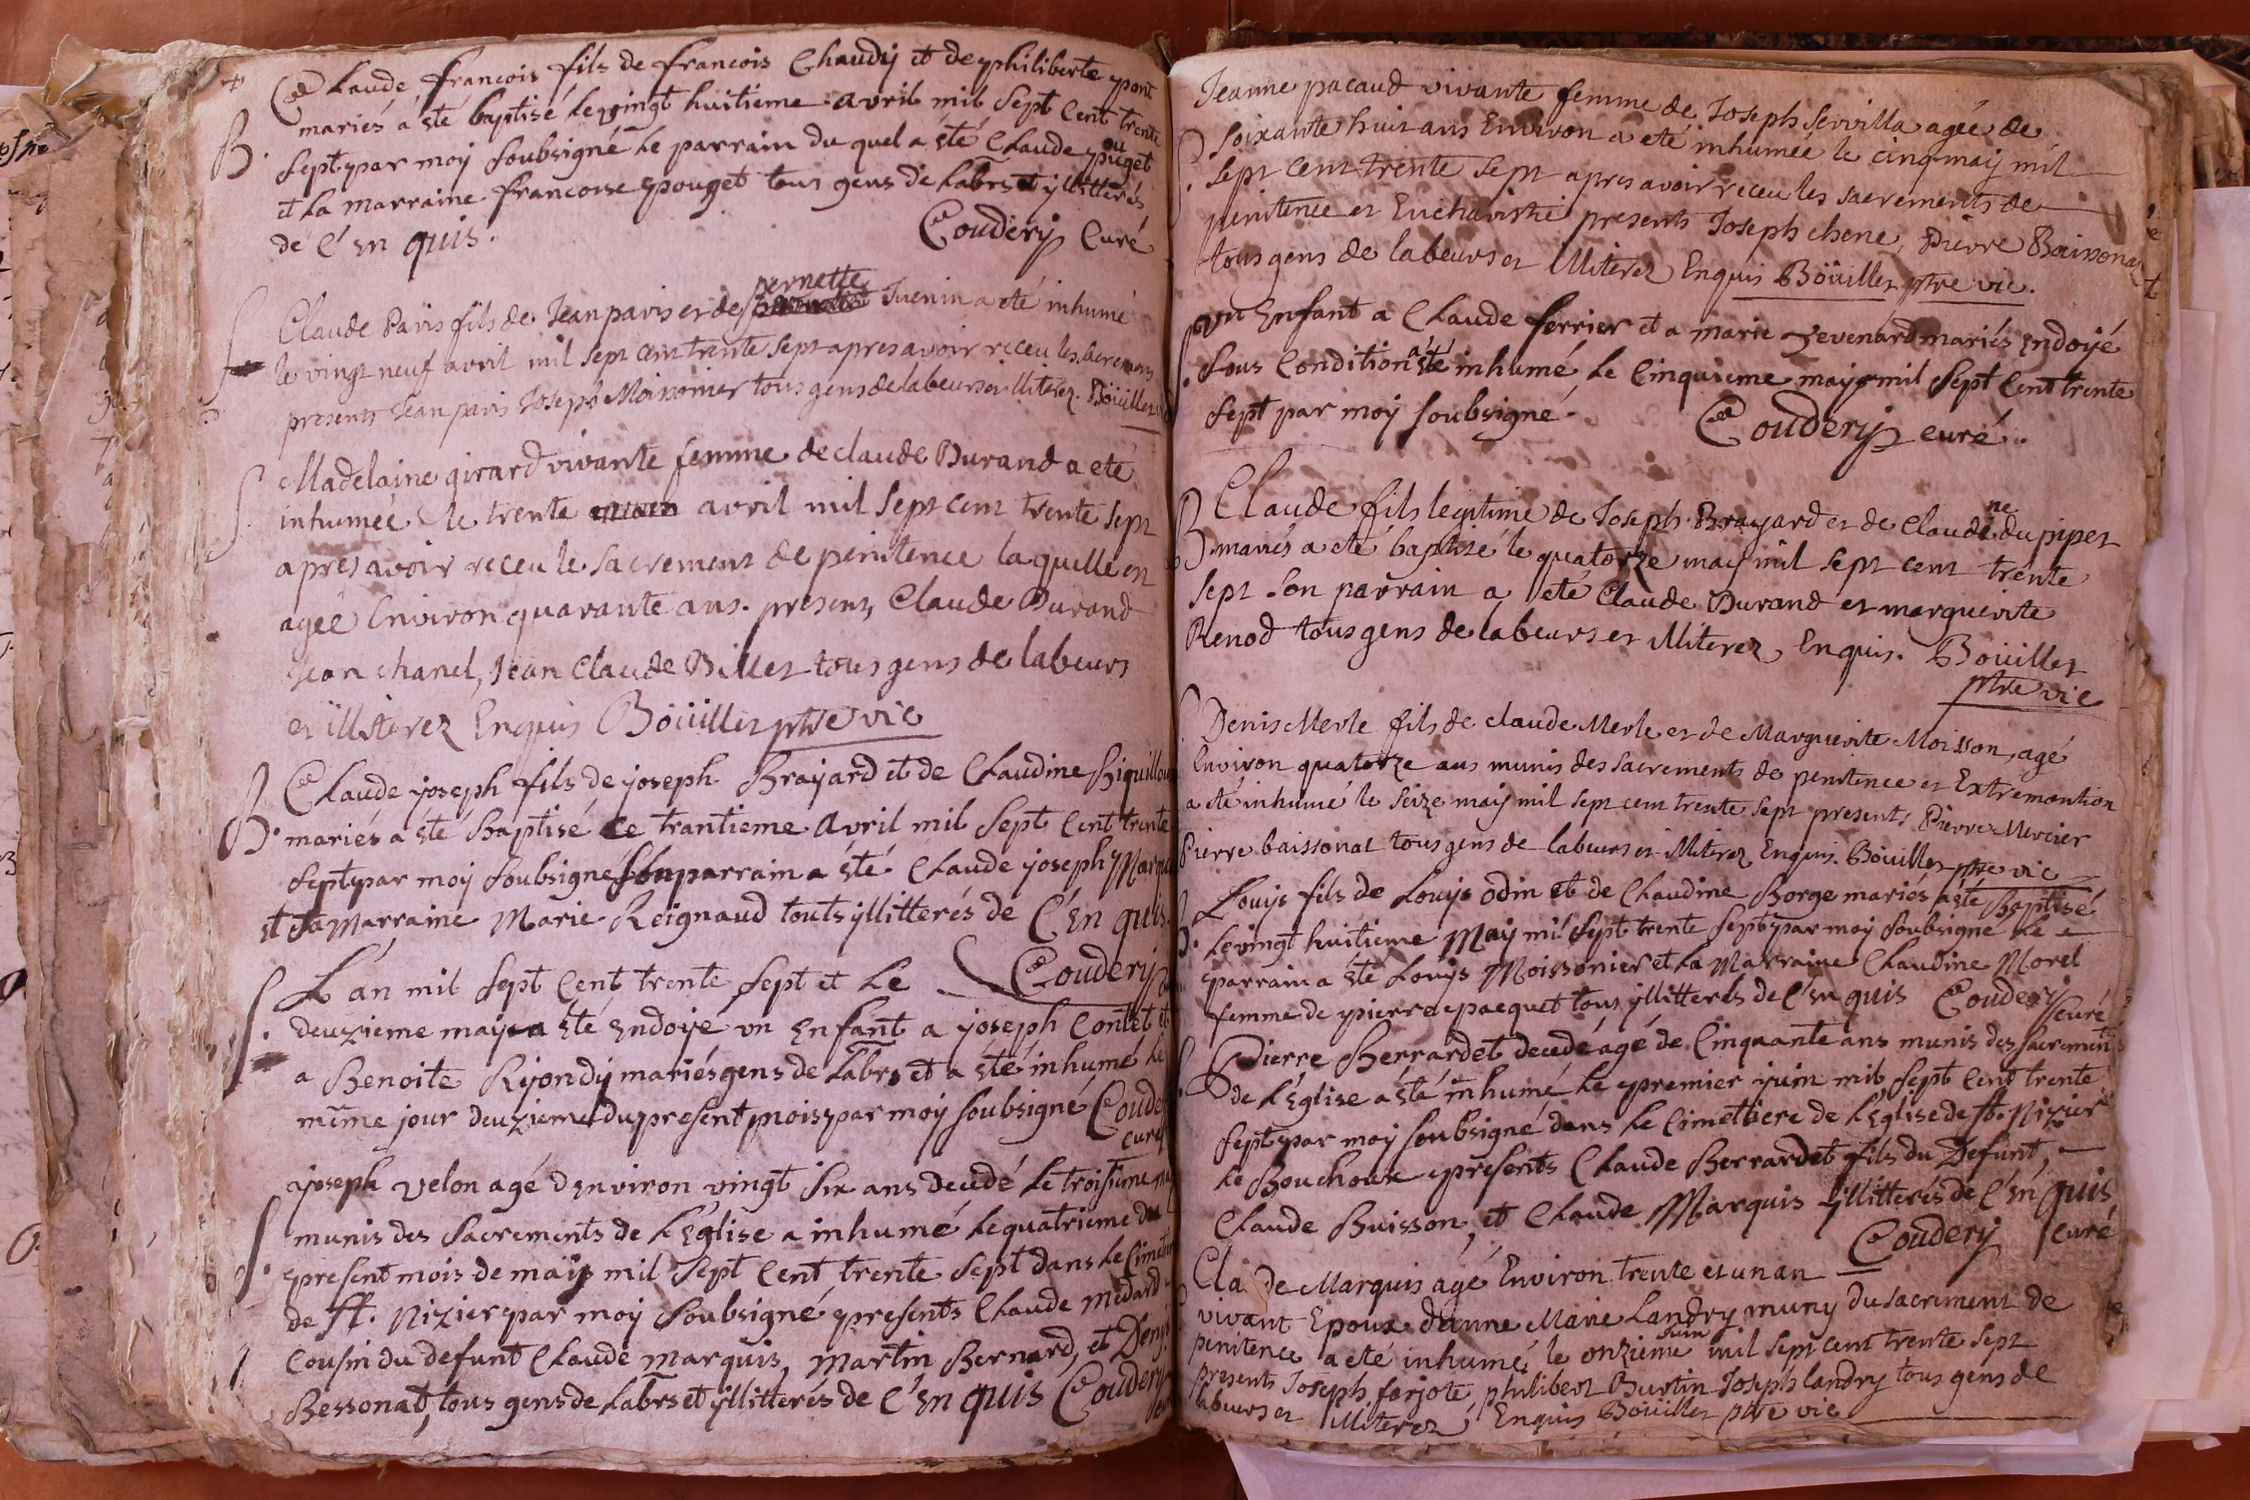 Claude françois fils de françois Chaudy et de philiberte pont
B. mariés a eté baptisé le vingt huitieme avril mil sept cent trente
sept par moy soubsigné le parrain du quel a été Claude pouget
et la marraine francoise pouget tous gens de labrs et yllitterés
de c'en quis. Coudery Curé
S Claude Paris fils de Jean paris et de pernette Juenin a eté inhumé
le vingt neuf avril mil sept cent trente sept apres avoir receu les sacremens
presents Jean paris Joseph Moissonier tous gens de labeurs et illiterez. Boüillet
S. Madelaine girard vivante femme de claude Durand a eté
inhumée le trente avril mil sept cent trente sept
apres avoir receu le sacrement de penitence laquelle est
agée Environ quarante ans. presents Claude Durand
Jean chanel, Jean Claude Billet tous gens de labeurs
et illiterez Enquis Boüillet ptre vic
B. Claude joseph fils de joseph Brayard et de Claudine
mariés a eté Baptisé le trantieme avril mil sept cent trente
sept par moy soubsigné son parrain a eté Claude joseph
et sa marraine Marie Reignaud touts yllitterés de C'en quis
S. L'an mil sept cent trente sept et le Coudery
deuzieme may a eté endoyé un enfant a joseph Contet et
a Benoite Ryondy mariés gens de labrs et a eté inhumé le
même jour deuzieme du present mois par moy soubsigné Coudery
curé
joseph velon agé d'environ vingt six ans decedé le troisieme may
S. munis des sacrements de l'Eglise a inhumé le quatrieme du
present mois de may mil sept cent trente sept dans le Cimetiere
de st. Nizier par moy soubsigné presents Claude medard
cousin du defunt Claude marquis, martin Bernard, et Denys
Bessonat, tous gens de labrs et yllitterés de c'en quis Coudery
Jeanne pacaud vivante femme de Joseph servilla agée de
S. soixante huit ans Environ a eté inhumée le cinq may mil
sept cent trente sept apres avoir receu les sacrements de
penitence et Eucharistie presents Joseph chene, Pierre Baissonat
tous gens de labeurs et illiterez Enquis Boüillet ptre vic.
un Enfant a Claude ferrier et a marie Revenard mariés endoyé
S. sous condition a eté inhumé le cinquieme may mil sept cent trente
sept par moy soubsigné. Coudery curé.
Claude fils legitime de Joseph Brayard et de claudine dupipet
B mariés a eté baptisé le quatorze may mil sept cent trente
sept son parrain a eté Claude Durand et marguerite
Renod tous gens de labeurs et illiterez Enquis. Boüillet
ptre vic
Denis Merle fils de claude Merle et de Marguerite Moisson, agé
Environ quatorze ans munis des sacrements de penitence et Extremontion
a eté inhumé le seize may mil sept cent trente sept presents Pierre Mercier
Pierre baissonat tous gens de labeurs et illiterez Enquis. Boüillet ptre vic
Louis fils de Louis odin et de Claudine Borge mariés a eté Baptisé
B. le vingt huitieme May mil sept trente sept par moy soubsigné le
parrain a eté Louis Moissonier et la Marraine Claudine Morel
femme de pierre pacquet tous yllitterés de c'en quis Coudery curé
Pierre Berrardet decedé agé de Cinquante ans munis des sacrements
de l'Eglise a eté inhumé le premier juin mil sept cent trente
sept par moy soubsigné dans le Cimettiere de l'Eglise de st. Nizier
le Bouchoux presents Claude Berrardet fils du Defunt,
Claude Buisson, et Claude Marquis yllitterés de c'en quis
Coudery curé
Claude Marquis agé Environ trente et un an
vivant Epoux d'anne Marie Landry muny du sacrement de
penitence a eté inhumé le onzieme Juin mil sept cent trente sept
presents Joseph farjote, philibert Burtin Joseph landry tous gens de
labeurs et illiterez Enquis Boüillet ptre vic